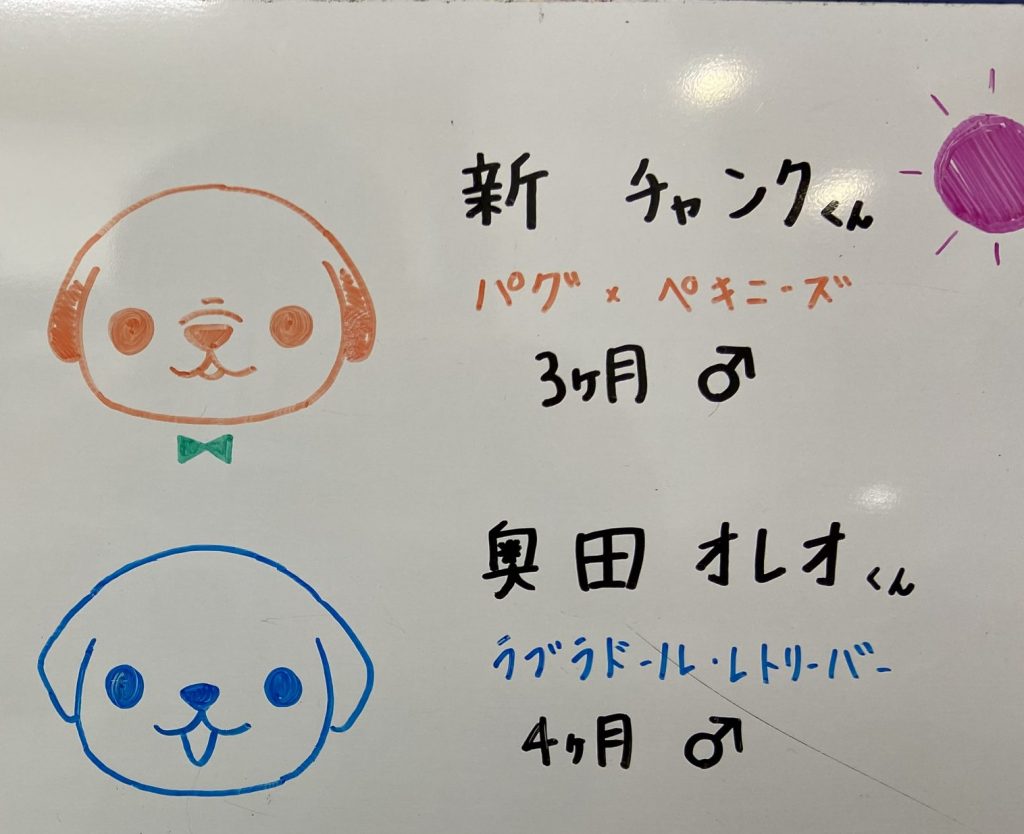 新 チャンクくん
パグ × ペキニーズ
3ヶ月 ♂
奥田 オレオくん
ラブラドール・レトリーバー
4ヶ月 ♂